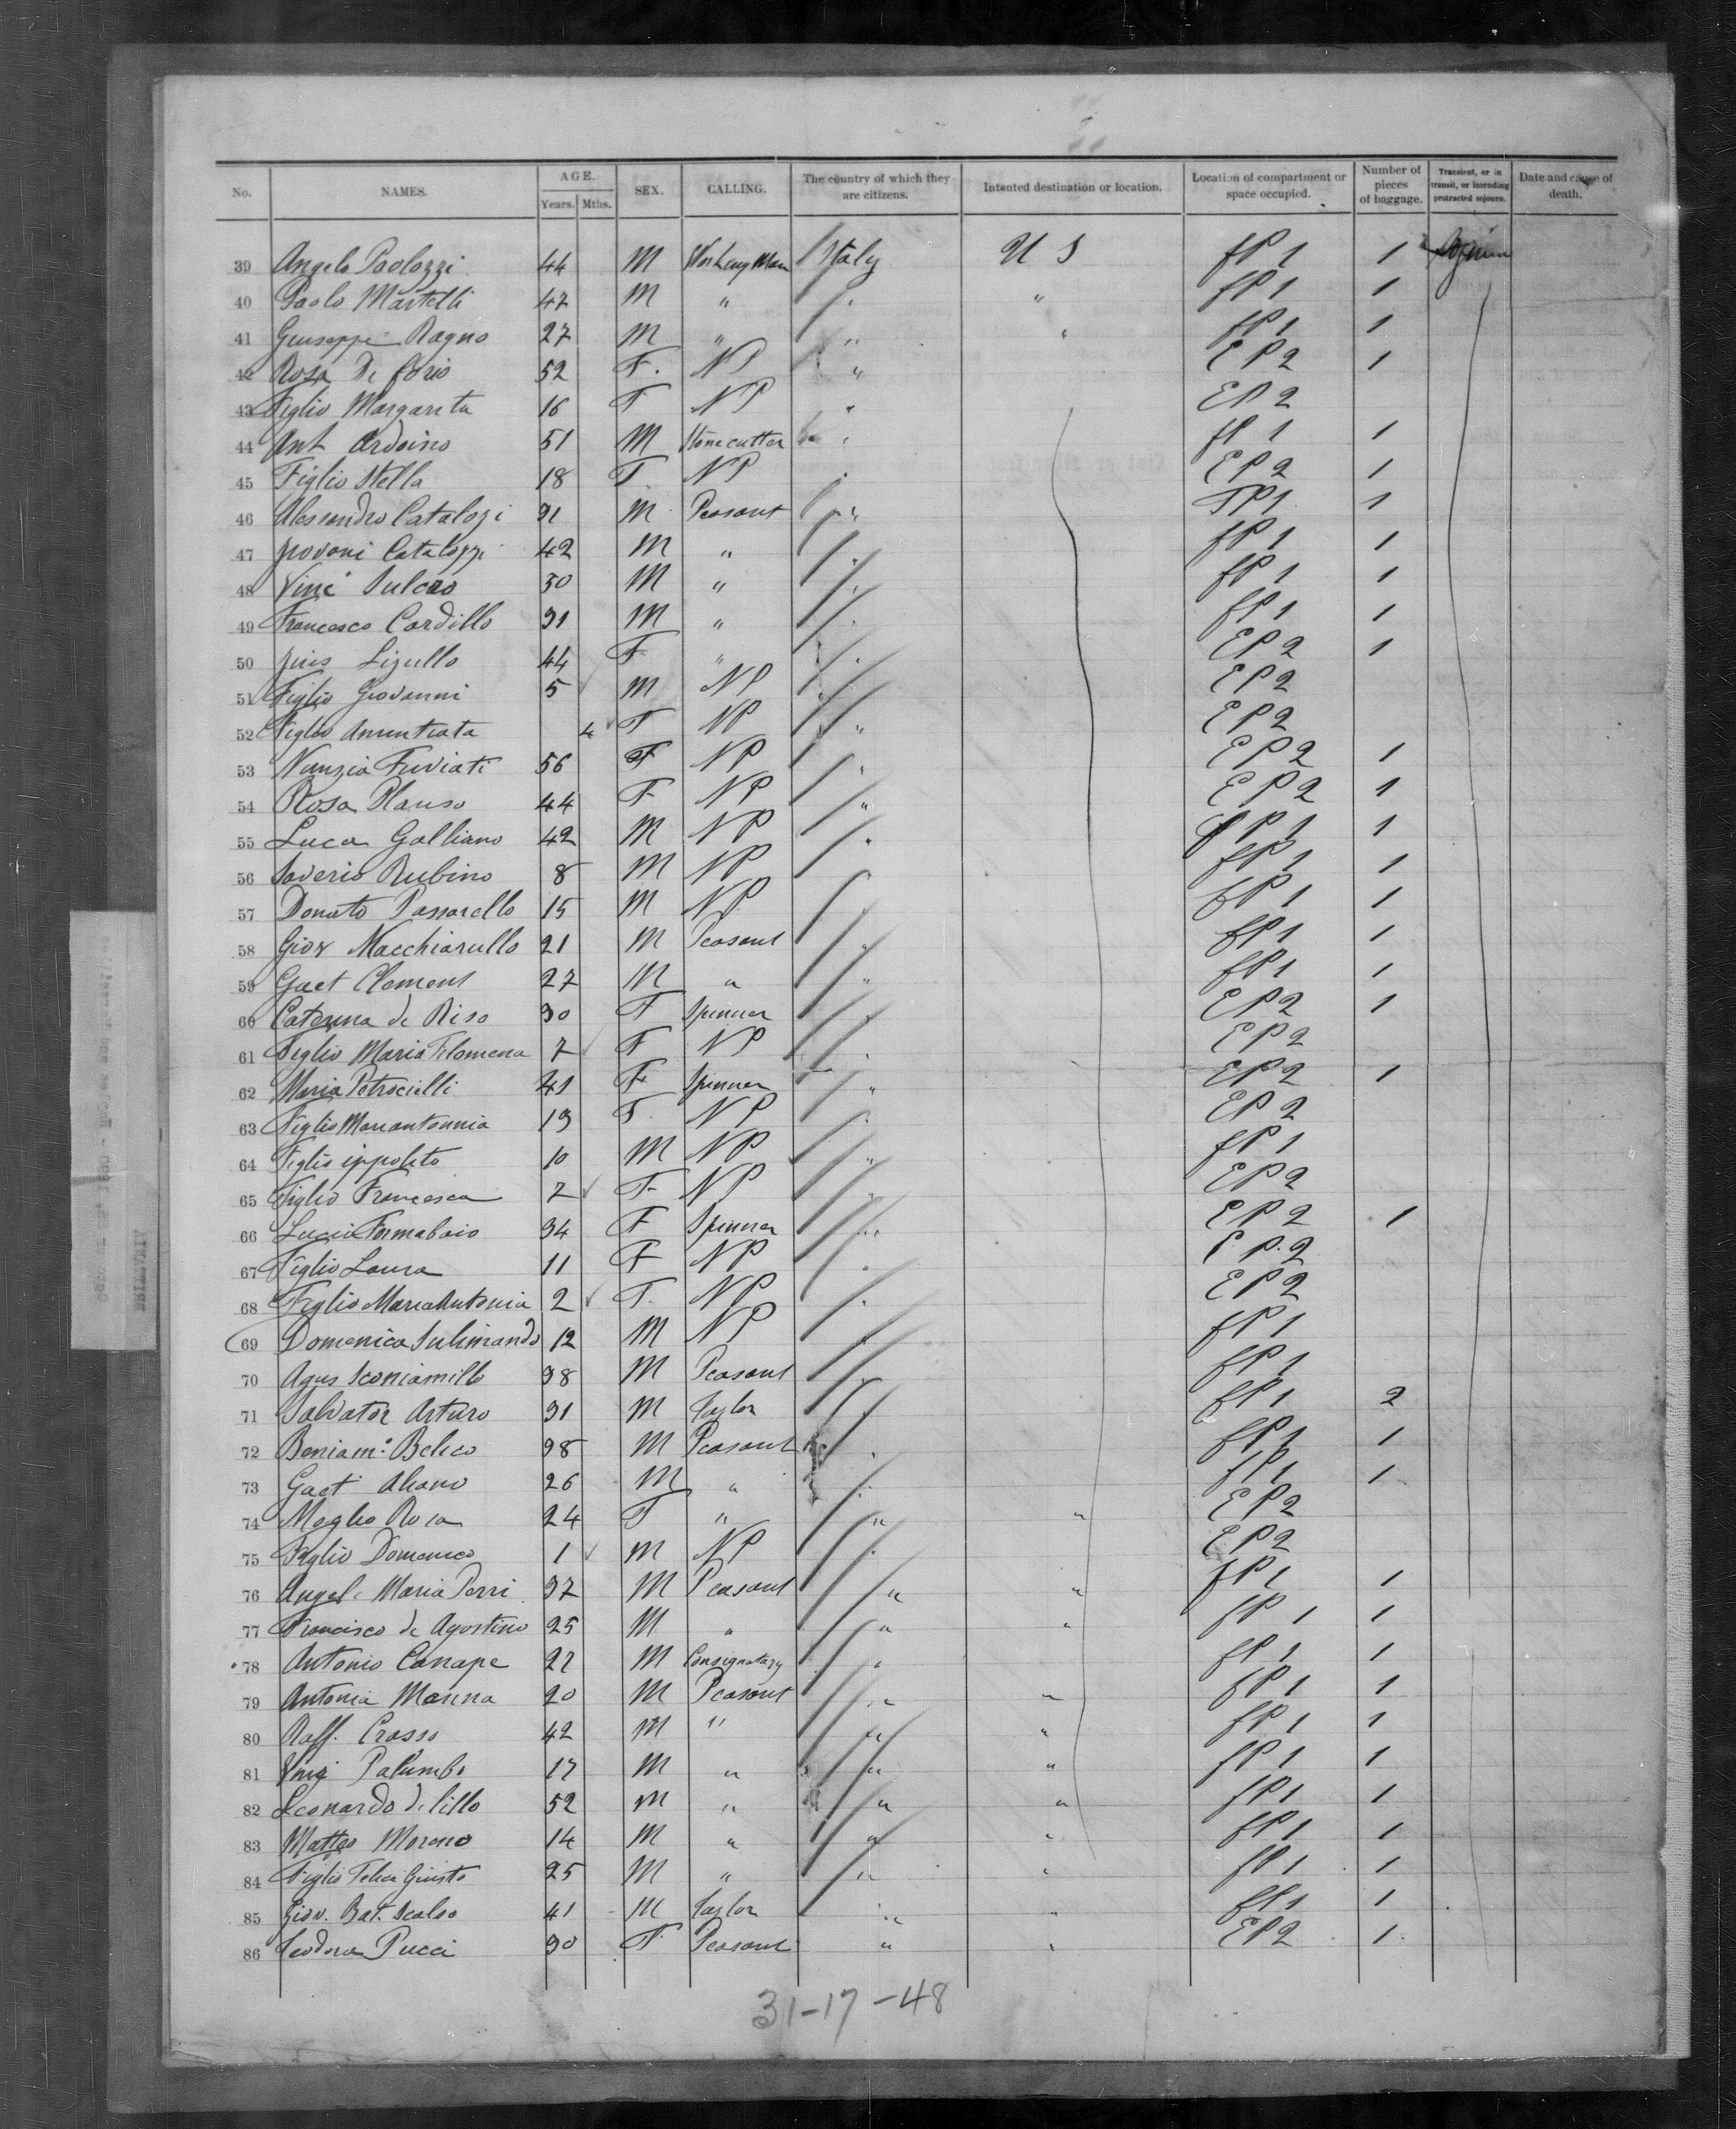 No. NAMES. AGE. Years. Mths. SEX. CALLING. The country of which they are citizens. Intented destination or location. Location of compartment or space occupied. Number of pieces of baggage. Transient, or in transit, or intending protracted sojourn. Date and cause of death.
39 Angelo Paolozzi 44 M Italy U S fP 1 1
40 Paolo Martelli 47 M " " " fP 1 1
41 Giuseppe Ragno 27 M " " " fP 1 1
42 Rosa De 52 F. NP " EP2 1
43 Figlio Margareta 16 F NP " EP2
44 Ant Ardoino 51 M Stonecutter " fP 1 1
45 Figlio Stella 18 F NP " EP2 1
46 Alessandro Catalozzi 31 M Peasant " fP1 1
47 Catalozzi 42 M " " fP 1 1
48 30 M " " fP 1 1
49 Francesco Cardillo 31 M " " fP 1 1
50 44 F " " EP2 1
51 Figlio Giovanni 5 M NP " EP2
52 Figlio Annuntiata 4 F NP " EP2
53 Nunzia 56 F NP " EP2 1
54 Rosa 44 F NP " EP2 1
55 Luca Galliano 42 M NP " fP 1 1
56 Saverio Rubino 8 M NP fP 1 1
57 Donato Passarello 15 M NP fP 1 1
58 Giov Macchiarullo 21 M Peasant " fP1 1
59 Gaet Clement 27 M " " fP1 1
60 Caterina de Riso 30 F Spinner " EP2 1
61 Figlio Maria Filomena 7 F NP " EP2
62 Maria Petrocielli 41 F Spinner " EP2 1
63 Figlio Mariantonnia 13 F. NP " EP2
64 Figlio ippolito 10 M NP " fP 1
65 Figlio Francesca 7 F NP " EP2
66 Lucia Formabaio 34 F Spinner " EP2 1
67 Figlio Laura 11 F NP " EP2
68 Figlio Maria Antonia 2 F. NP " EP2
69 Domenico 12 M NP " fP 1
70 Agus 38 M Peasant " fP 1
71 Salvator Arturo 31 M Taylor fP 1 2
72 Beniam. 38 M Peasant " fP1 1
73 Gaet 26 M " " fP1 1
74 Moglie Rosa 24 F " " " EP2
75 Figlio Domenico 1 M NP " EP2
76 Angel. Maria Perri 37 M Peasant " " fP 1 1
77 Francisco de Agostino 25 M " " " fP 1 1
78 Antonio Canape 27 M Consignatary " fP 1 1
79 Antonia Manna 20 M Peasant " " fP 1 1
80 Raff. Crasso 42 M " " " fP 1 1
81 Palumbo 17 M " " " fP 1 1
82 Leonardo de lillo 52 M " " " fP1 1
83 Matteo Moreno 14 M " " " fP 1 1
84 Figlio Felice Giusto 25 M " " " fP 1 1
85 Giov. Bat. Scalso 41 M Taylor " " fP1 1
86 Teodora Pucci 30 F. Peasant " " EP2 1
31-17-48